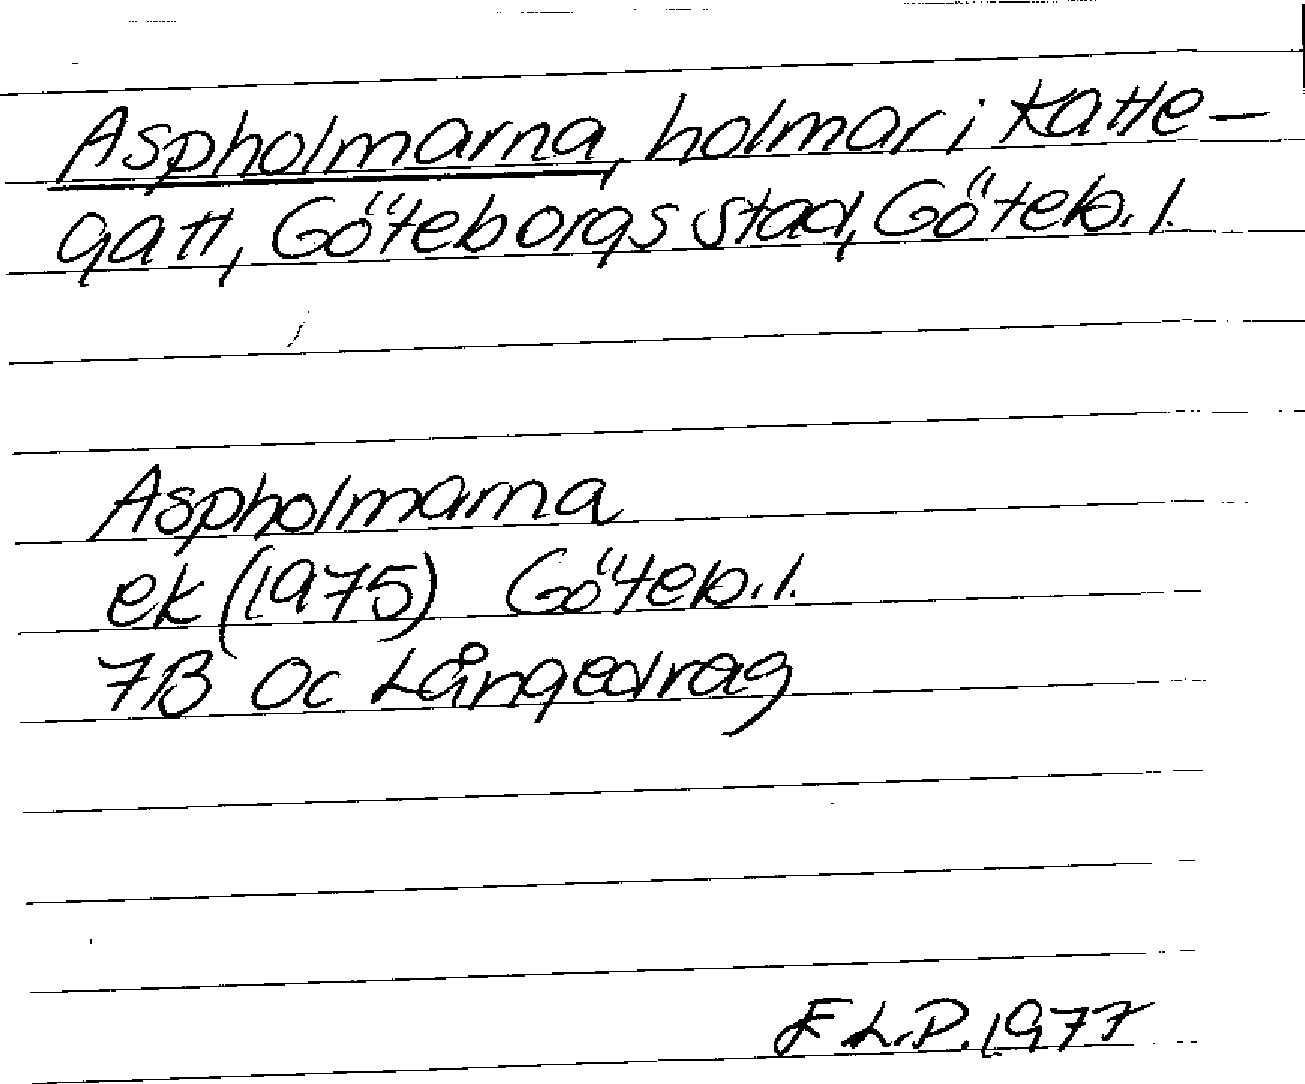 Aspholmarna, holmar i Katte-
gatt, Göteborgs stad, Göteb. l.
Aspholmarna
ek (1975) Göteb. l.
7B 0c Långedrag
E L.P. 1977